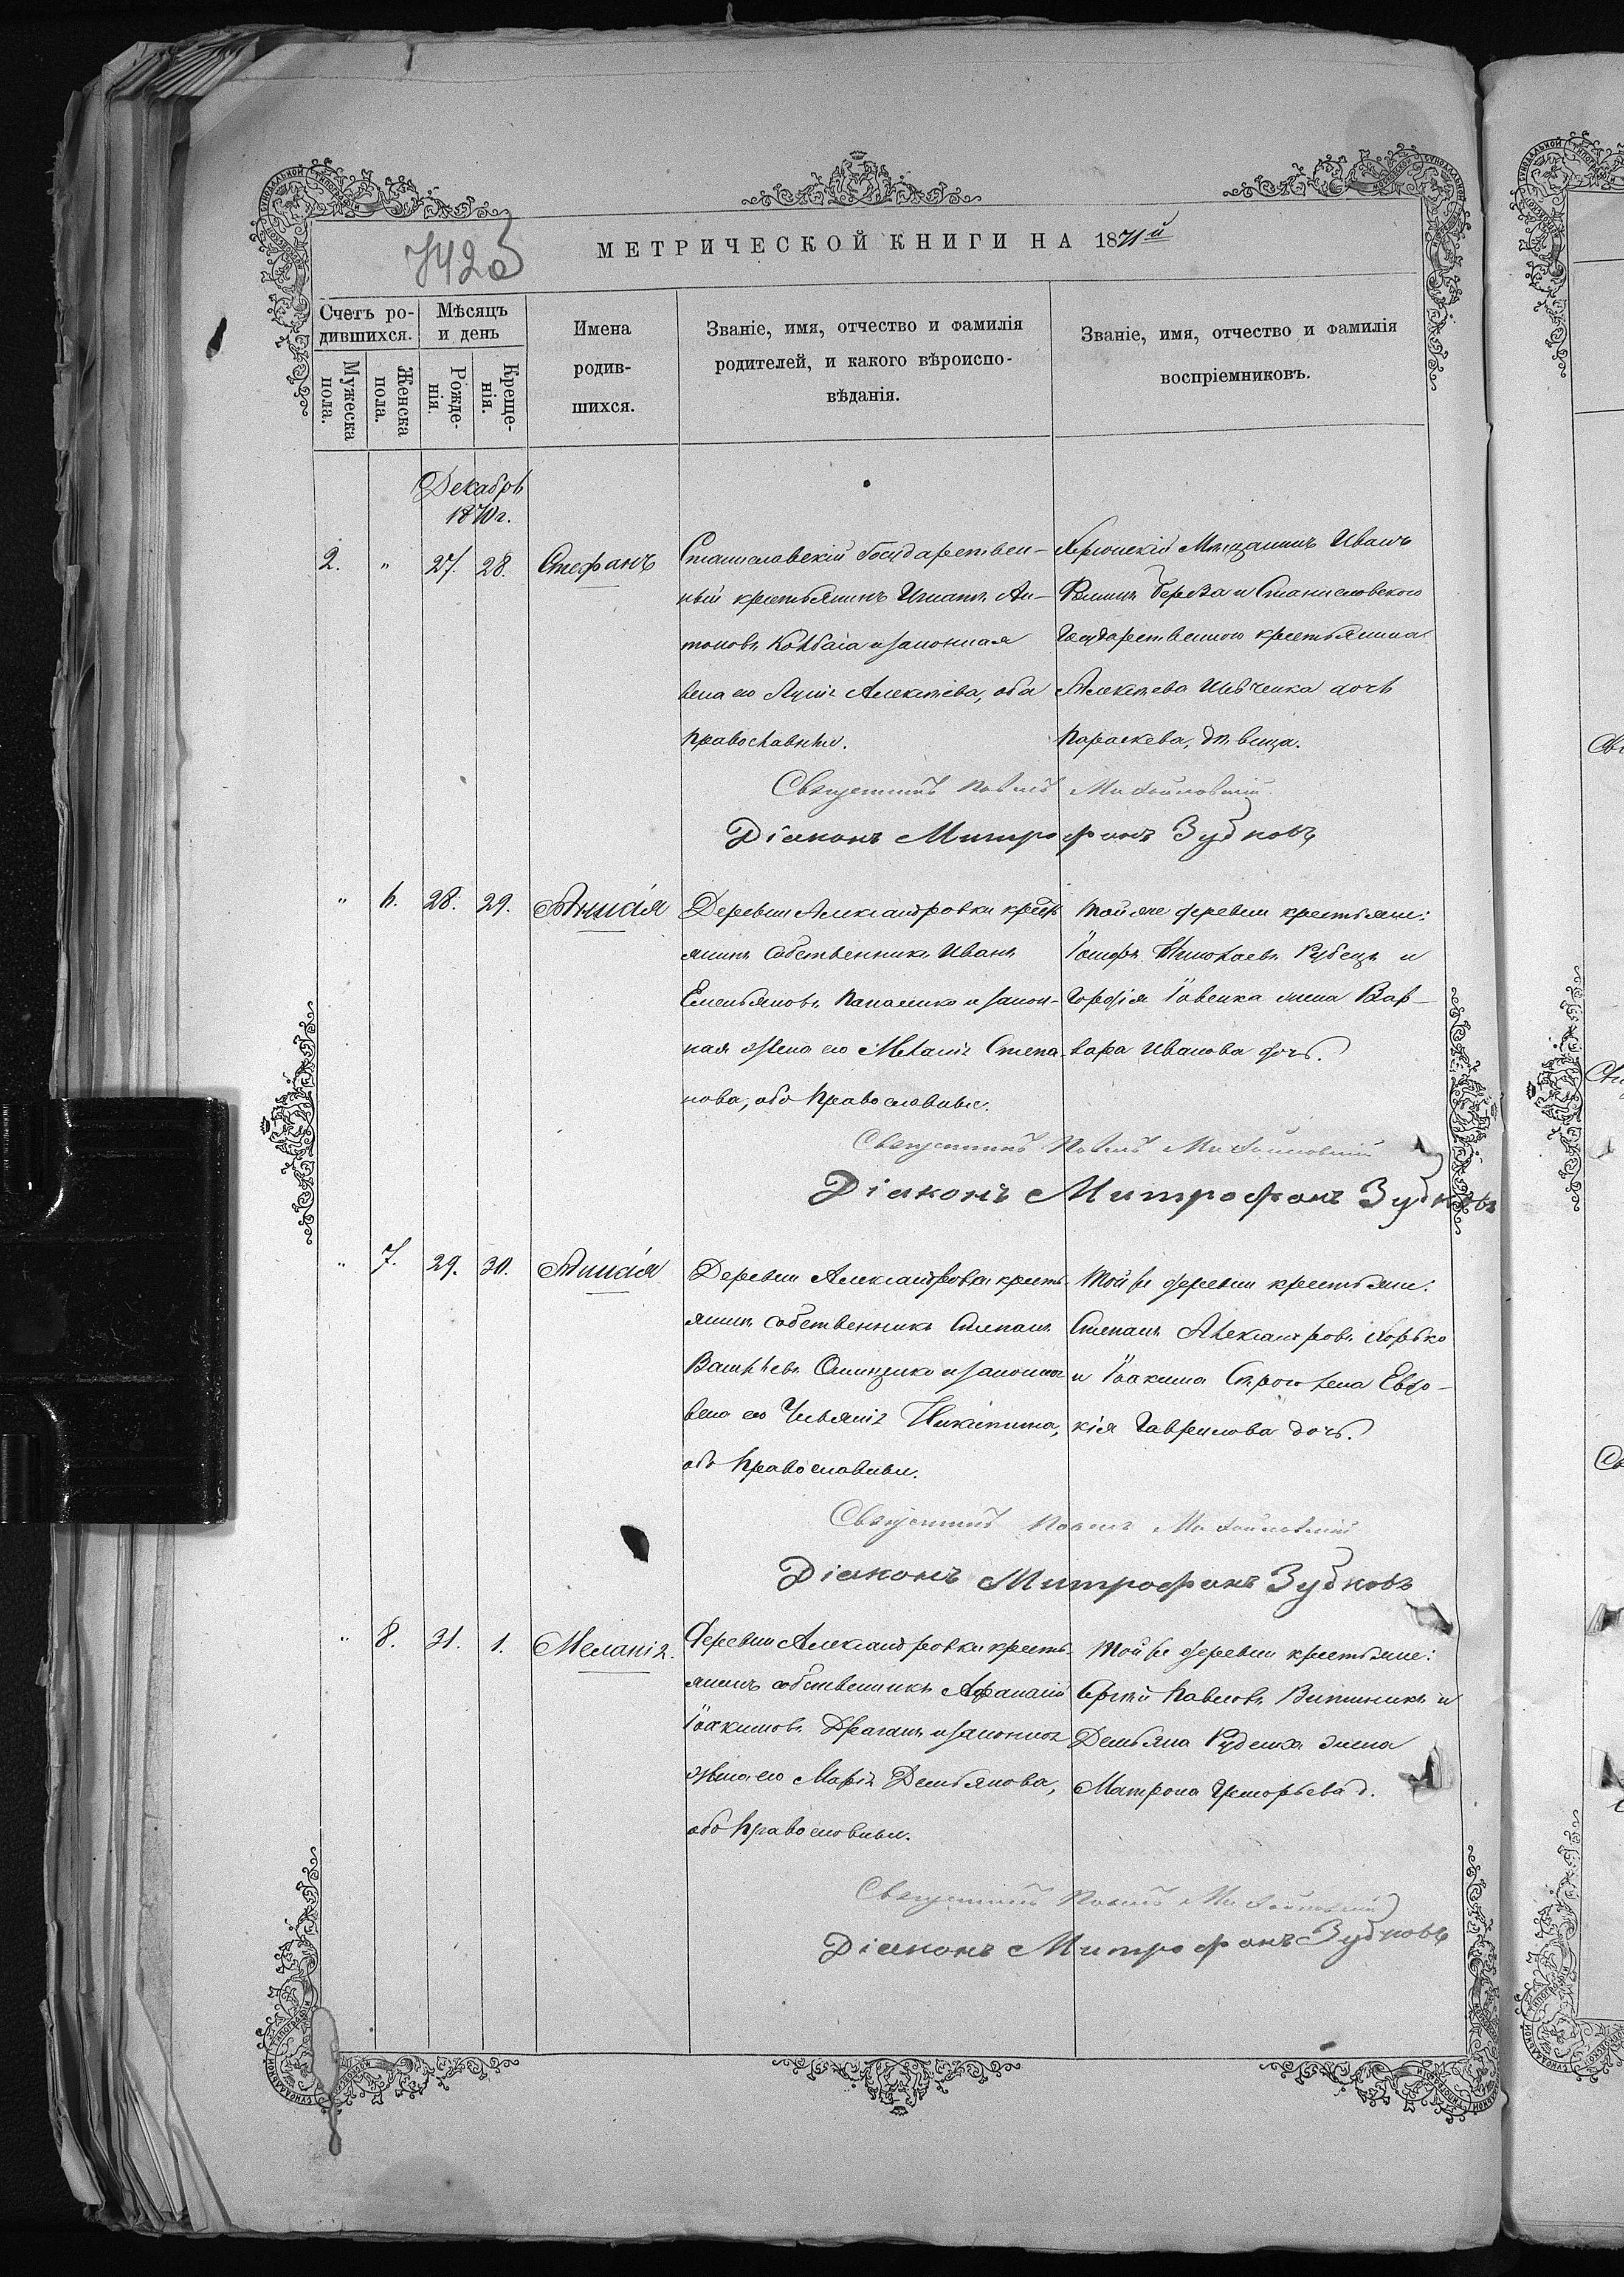 МЕТРИЧЕСКОЙ КНИГИ НА 1871й
Счетъ ро-
дившихся.
Мужеска
пола.
Женска
пола.
Мѣсяцъ
и день
Рожде-
нія.
Креще-
нія.
Имена
родив-
шихся.
Званіе, имя, отчество и фамилія
родителей, и какого вѣроиспо-
вѣданія.
Званіе, имя, отчество и фамилія
воспріемниковъ.
Декабрь
1870 г.
2. " 27. 28. Стефанъ
Станиславскій Государствен-
ный крестьянинъ Игнатъ Ан-
тоновъ и законная
его Алексѣева, оба
православные.
Херсонскій Мѣщанинъ Иванъ
Береза и Станиславского
Государственного крестьянина
Алексѣева Шевченка дочь
Параскева, дѣвица.
Священникъ Павелъ Михайловскій
Діаконъ Митрофанъ Зубковъ
" 6. 28. 29. Анисія
Деревни Александровки кресть
янинъ собственникъ Иванъ
Емельяновъ и закон-
ная жена его Меланія Степа-
нова, оба православные.
Той же деревни крестьяне:
Іосифъ Николаевъ Рубецъ и
жена Вар-
вара Иванова дочь.
Священникъ Павелъ Михайловскій
Діаконъ Митрофанъ Зубковъ
" 7. 29. 30. Анисія
Деревни Александровки кресть-
янинъ собственникъ Степанъ
и законная
его Ульянія Никитина,
оба православные.
Той же деревни крестьяне:
Степанъ Александровъ Хорько
и Іоакима жена Евдо-
кія Гаврилова дочь.
Священникъ Павелъ Михайловскій
Діаконъ Митрофанъ Зубковъ
" 8. 31. 1. Меланія.
Деревни Александровки кресть-
янинъ собственникъ Афанасій
Іоакимовъ Драганъ и законная
жена его Марія Демьянова,
оба православные.
Той же деревни крестьяне:
Сергѣй Павловъ и
Демьяна Руденка жена
Матрона Григорьева д.
Священникъ Павелъ Михайловскій
Діаконъ Митрофанъ Зубковъ